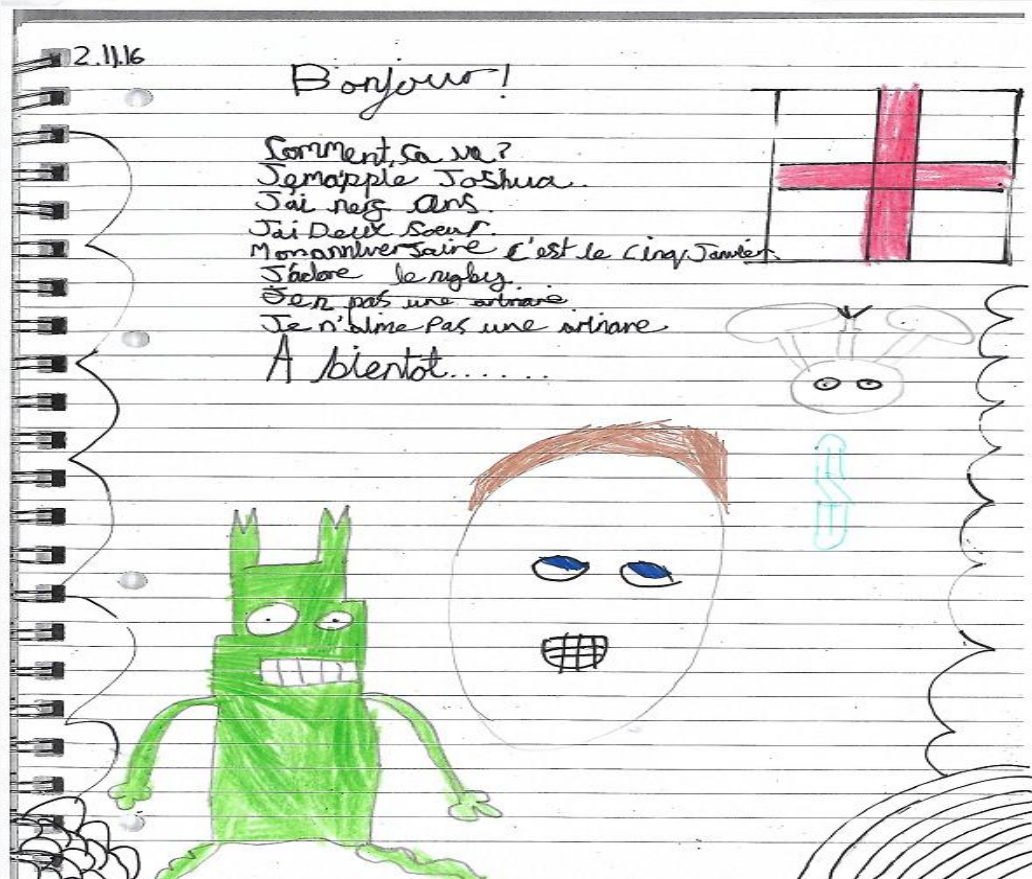 2.11.16
Bonjour!
Comment, Ça va?
Jemapple Joshua.
J'ai neg ans.
J'ai Deux Soeur.
Monanniversaire C'est le Cinq Janvier
J'adore le rugby.
Je n pas une artnare
Je n'aime Pas une artnare
A bientot.......